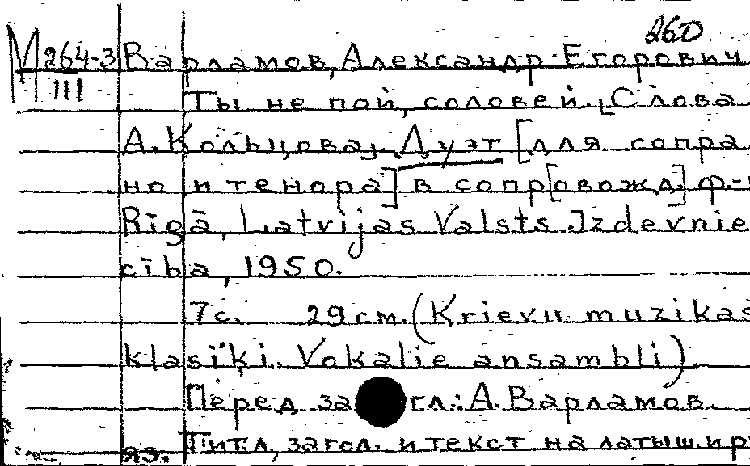 260
М 264-3 Варламов, Александр Егорович
III Ты не пой, соловей. [Слова
А. Кольцова]. Дуэт [для сопра
но и тенора] в сопр[овожд.] ф.-
Rīgā, Latvijas Valsts Izdevnie
cība, 1950.
7с. 29 см. (Krievu muzikas
klasiķi. Vokalie ansambli)
Перед загл.: А. Варламов.
Титл, загол. и текст на латыш. и р